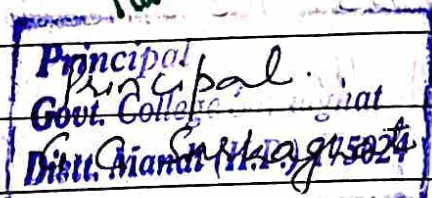 Principal
Principal.
Govt. College
G.C. Sarkaghat
Distt. Mandi (H.P.) 175024